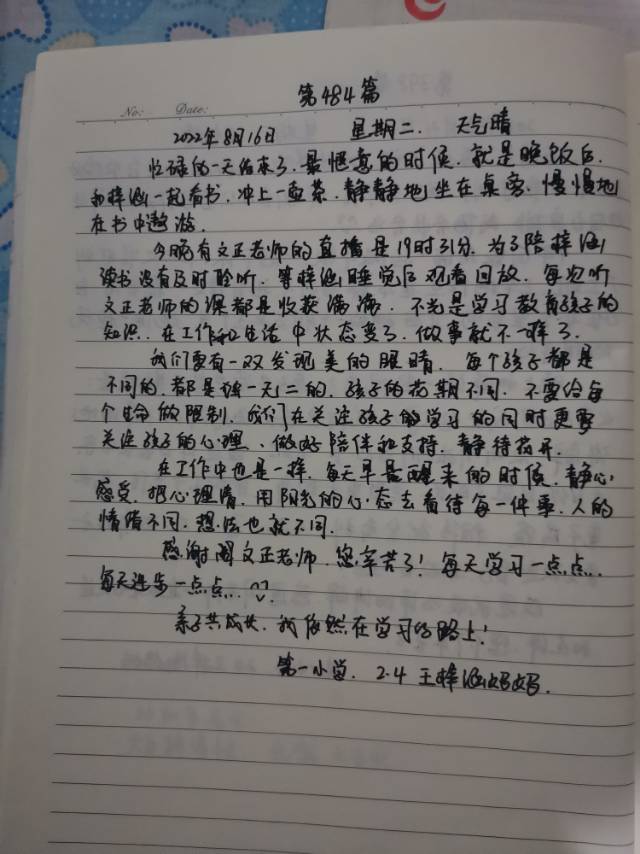 第484篇
No: Date:
2022年8月16日 星期二. 天气晴
忙碌的一天结束了.最惬意的时候.就是晚饭后.
和梓涵一起看书.冲上一壶茶.静静地坐在桌旁.慢慢地
在书中遨游.
今晚有文正老师的直播是19时31分.为了陪梓涵
读书没有及时聆听.等梓涵睡觉后观看回放.每次听
文正老师的课都是收获满满.不光是学习教育孩子的
知识.在工作和生活中状态变了.做事就不一样了.
我们要有一双发现美的眼睛.每个孩子都是
不同的.都是独一无二的.孩子的花期不同.不要给每
个生命做限制.我们在关注孩子的学习的同时更要
关注孩子的心理、做好陪伴和支持.静待花开.
在工作中也是一样.每天早晨醒来的时候.静心
感受.把心理清.用阳光的心态去看待每一件事.人的
情绪不同.想法也就不同.
感谢阚文正老师.您辛苦了!每天学习一点点...
每天进步一点点...
亲子共成长.我依然在学习的路上!
第一小学.2.4 王梓涵妈妈.